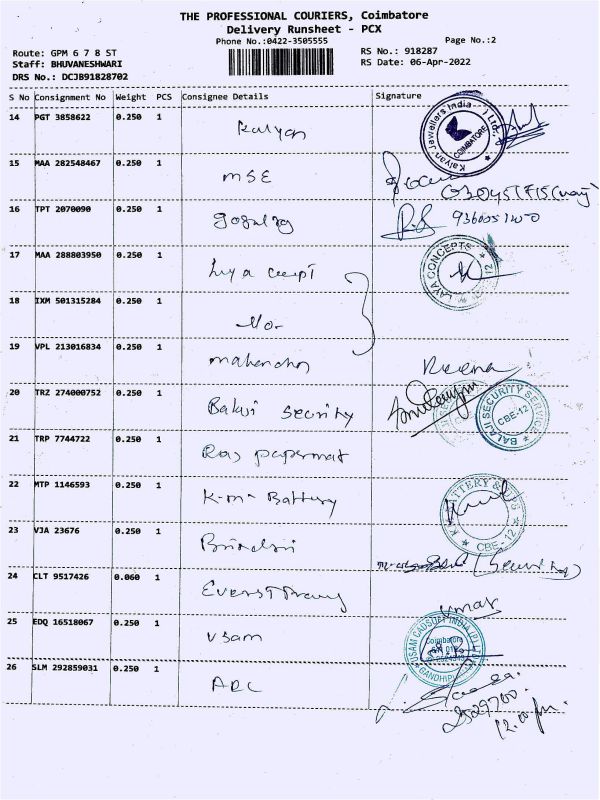 THE PROFESSIONAL COURIERS, Coimbatore
Delivery Runsheet - PCX
Phone No.:0422-3505555
Page No.:2
Route: GPM 6 7 8 ST
RS No.: 918287
Staff: BHUVANESHWARI
RS Date: 06-Apr-2022
DRS No.: DCJB91828702
S No Consignment No Weight PCS Consignee Details Signature
14 PGT 3858622 0.250 1 Kalyan
Kalyan Jewellers India Ltd. COIMBATORE
15 MAA 282548467 0.250 1 MSE
16 TPT 2070090 0.250 1
17 MAA 288803950 0.250 1
LAYA CONCEPTS 12
18 IXM 501315284 0.250 1
19 VPL 213016834 0.250 1 Mahendra Reena
20 TRZ 274000752 0.250 1 Balaji Security
BALAJI SECURITY SERVICE CBE-12
21 TRP 7744722 0.250 1 Raj papermat
22 MTP 1146593 0.250 1 K.m. Battery
BATTERY CBE-12
23 VJA 23676 0.250 1
24 CLT 9517426 0.060 1 umar
25 EDQ 16518067 0.250 1 Usam
USAM CADSOFT INDIA (P) LTD Coimbatore GANDHIPURAM
26 SLM 292859031 0.250 1 ADC
2529700
12.00 pm.